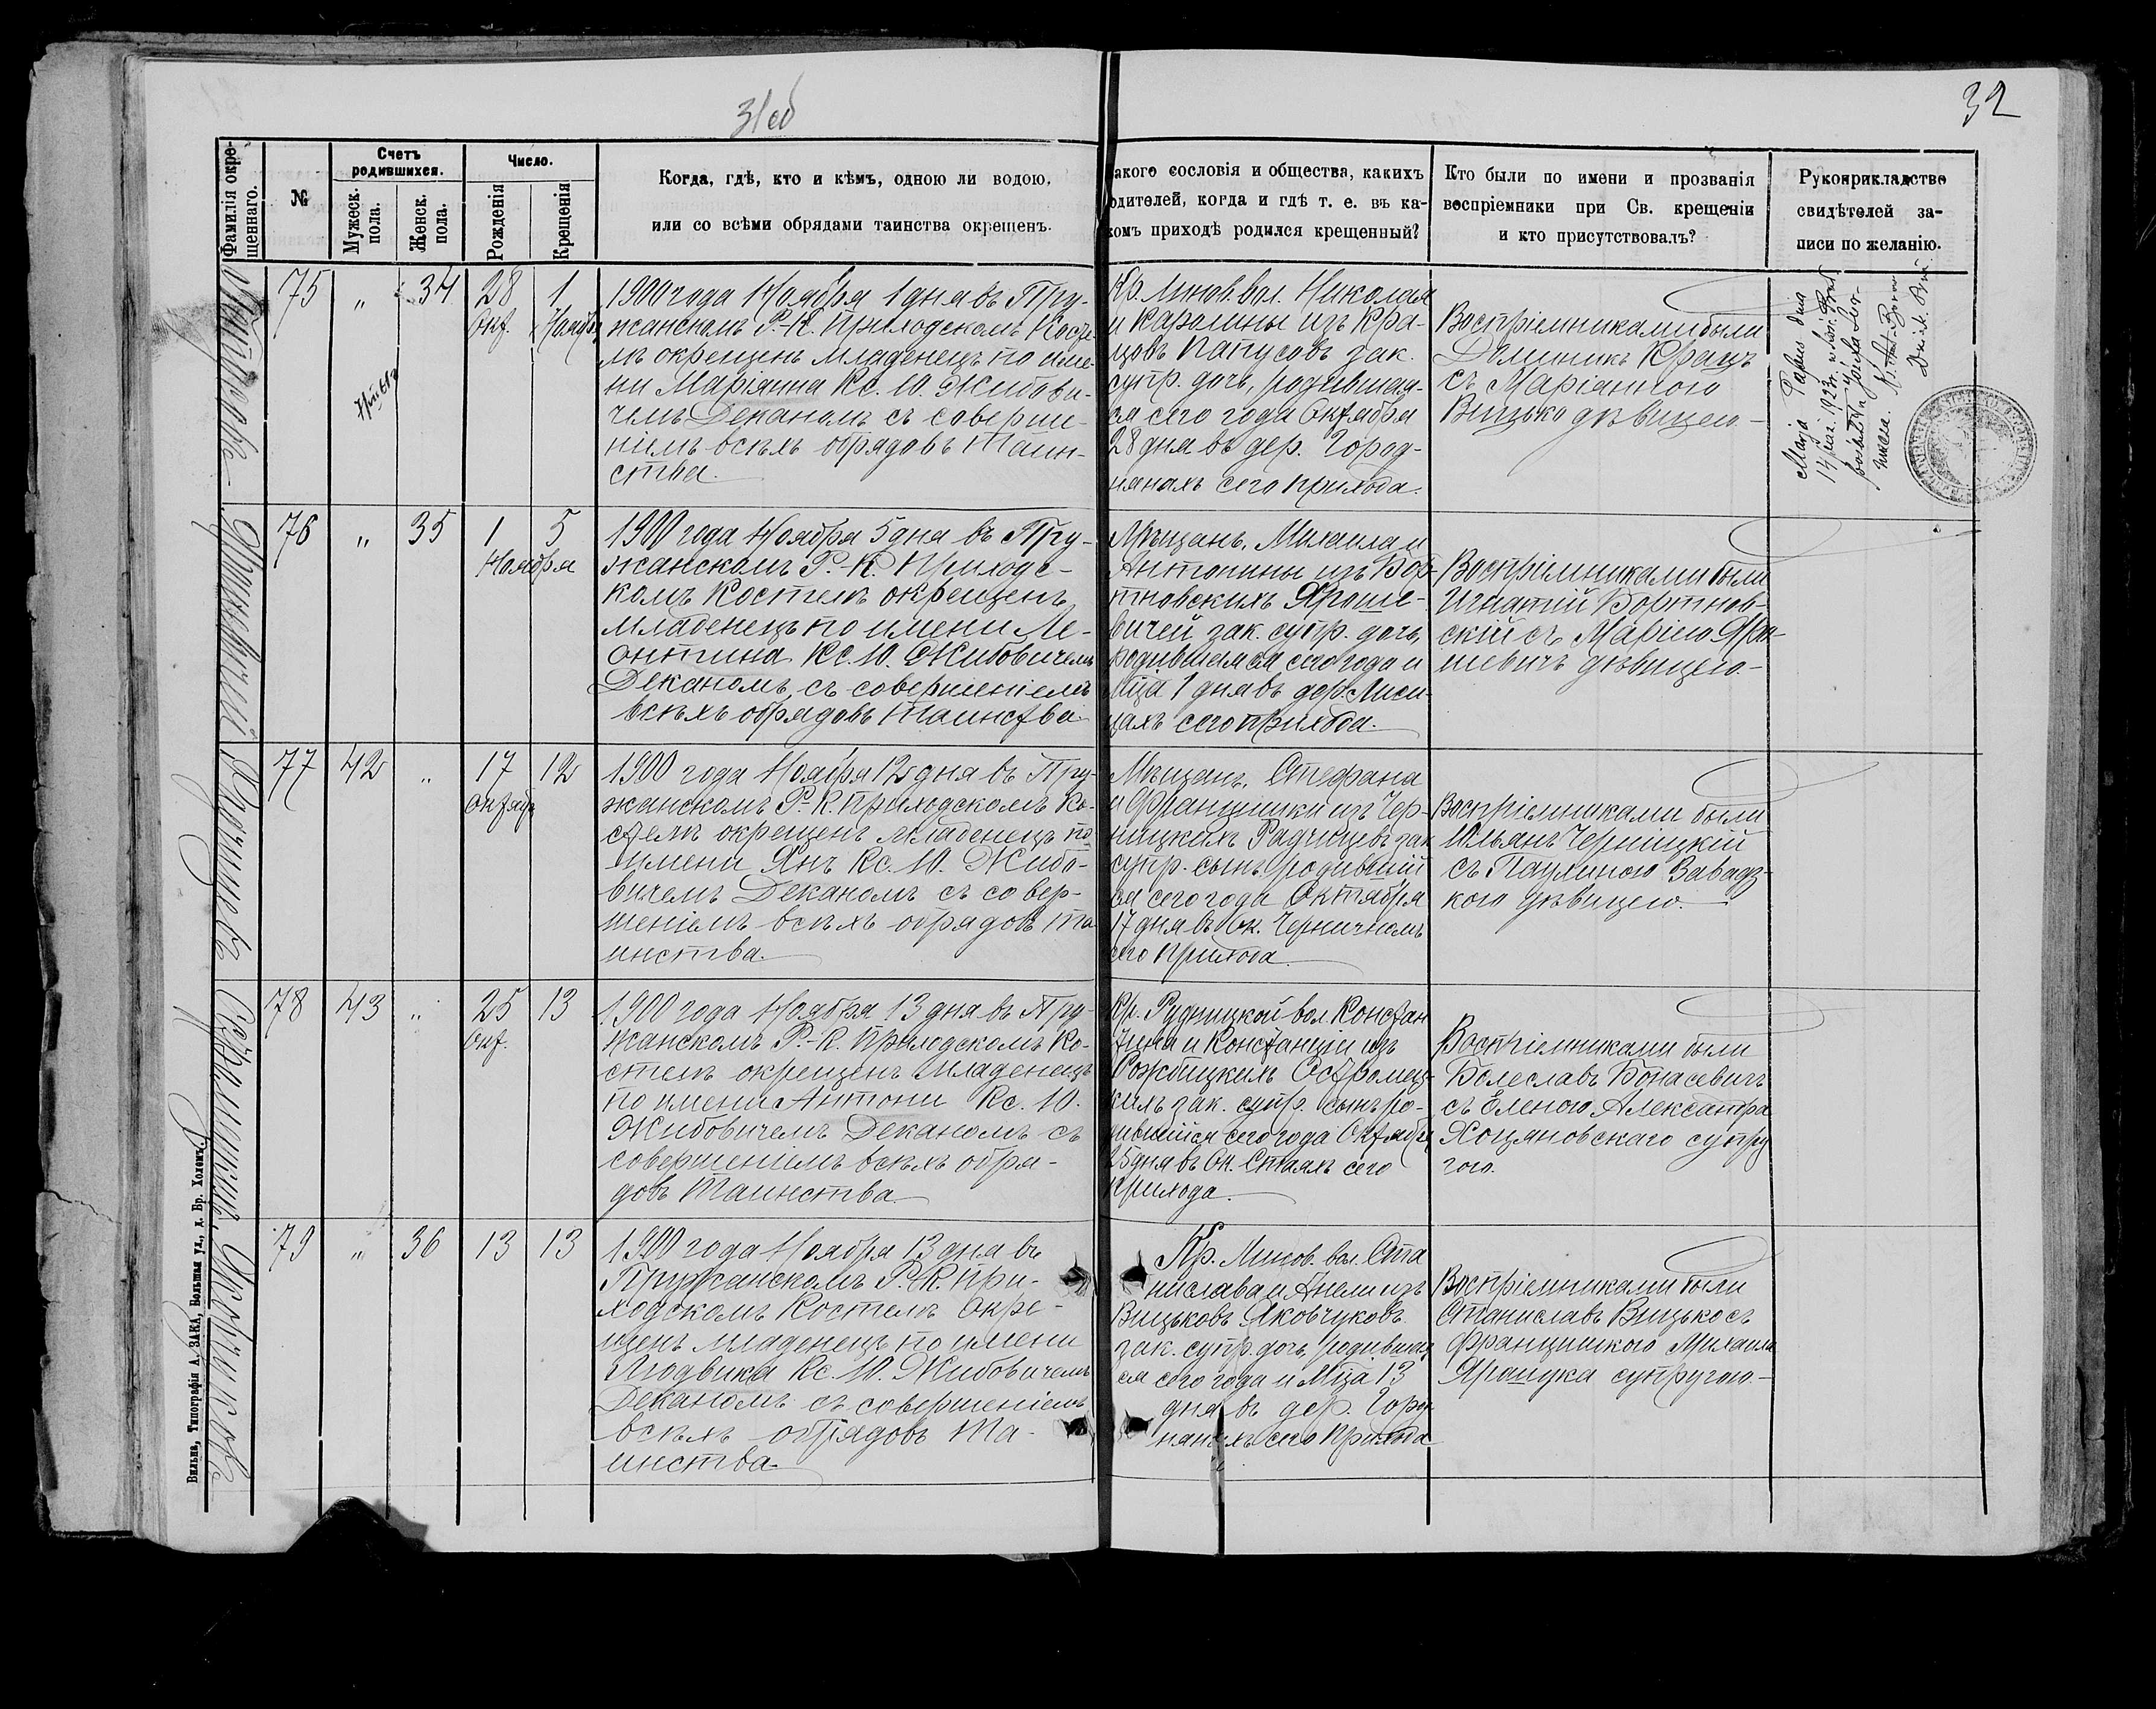 31об
32
Фамилія окре-
щеннаго.
№
Счетъ
родившихся.
Мужеск.
пола.
Женск.
пола.
Число.
Рожденія
Крещенія
Когда, гдѣ, кто и кѣмъ, одною ли водою,
или со всѣми обрядами таинства окрещенъ.
акого сословія и общества, какихъ
одителей, когда и гдѣ т. е. въ ка-
комъ приходѣ родился крещенный?
Кто были по имени и прозванія
воспріемники при Св. крещеніи
и кто присутствовалъ?
Рукоприкладство
свидѣтелей за-
писи по желанію.
Папусовъ
75
„
34
28
Окт.
1
Ноября
1900 года Ноября 1 дня въ Пру-
жанскомъ Р.-К. Приходскомъ Косте-
лѣ окрещенъ младенецъ по име-
ни Маріянна Кс. Ю. Жибови-
чемъ Деканомъ съ соверше-
ніемъ всѣхъ обрядовъ Таин-
ства.
Кр. Линов. вол. Николая
и Каролины изъ Кра-
цовъ Папусовъ зак.
супр. дочь, родившая-
ся сего года Октября
28 дня въ дер. Город-
нянахъ сего прихода.
Воспріемниками были
Доминикъ Крацъ
съ Маріянною
Вицько дѣвицею.
Marja Papus dnia
Ярошевичей
76
„
35
1
5
Ноября
1900 года Ноября 5 дня въ Пру-
жанскомъ Р.-К. Приходс-
комъ Костелѣ окрещенъ
младенецъ по имени Ле-
онтина Кс. Ю. Жибовичемъ
Деканомъ, съ совершеніемъ
всѣхъ обрядовъ таинства
Мѣщанъ. Михаила и
Антонины изъ Бор-
тновскихъ Яроше-
вичей зак. супр. дочь,
родившаяся сего года и
Мца 1 дня въ дер. Лиси-
цахъ сего прихода.
Воспріемниками были
Игнатій Бортнов-
скій съ Маріею Яро-
шевичъ дѣвицею.
Радчицовъ
77
42
„
17
Октября
12
1900 года Ноября 12 дня въ Пру-
жанскомъ Р.-К. Приходскомъ Ко-
стелѣ окрещенъ младенецъ по
имени Янъ Кс. Ю. Жибо-
вичемъ Деканомъ съ совер-
шеніемъ всѣхъ обрядовъ та-
инства.
Мѣщанъ. Стефана
и Францишки изъ Чер-
ницкихъ Радчицовъ зак
супр. сынъ, родившій
ся сего года Октября
17 дня въ Ок. Черничномъ
сего прихода.
Воспріемниками были
Юльянъ Черницкій
съ Паулиною Завадз-
кою дѣвицею.
Остромецкихъ
78
43
„
25
Окт.
13
1900 года Ноября 13 дня въ Пру-
жанскомъ Р.-К. Приходскомъ Ко-
стелѣ окрещенъ Младенецъ
по имени Антони Кс. Ю.
Жибовичемъ Деканомъ съ
совершеніемъ всѣхъ обря-
довъ Таинства.
Кр. Рудницкой вол. Констан
тина и Констанціи изъ
Рожбицкихъ Остромец-
кихъ зак. супр. сынъ ро-
дившійся сего года Октября
25 дня въ Ок. Стаяхъ сего
прихода.
Воспріемниками были
Болеславъ Бонасевичъ
съ Еленою Александра
Хоцяновскаго супру
гою.
Яковчуковъ
79
„
36
13
13
1900 года Ноября 13 дня въ
Пружанскомъ Р.-К. При-
ходскомъ Костелѣ Окре-
щенъ младенецъ по имени
Людвика Кс. Ю. Жибовичемъ
Деканомъ съ совершеніемъ
всѣхъ обрядовъ Та-
инства.
Кр. Линов. вол. Ста
нислава и Анели изъ
Вицьковъ Яковчуковъ
зак. супр. дочь, родившая
ся сего года и Мца 13
дня въ дер. Город
нянахъ сего Прихода
Воспріемниками были
Станиславъ Вицько съ
Францишкою Михаила
Ярощука супругою.
Вильна, Типографія А. ЗАКА, Большая ул., д. Бр. Холемъ.